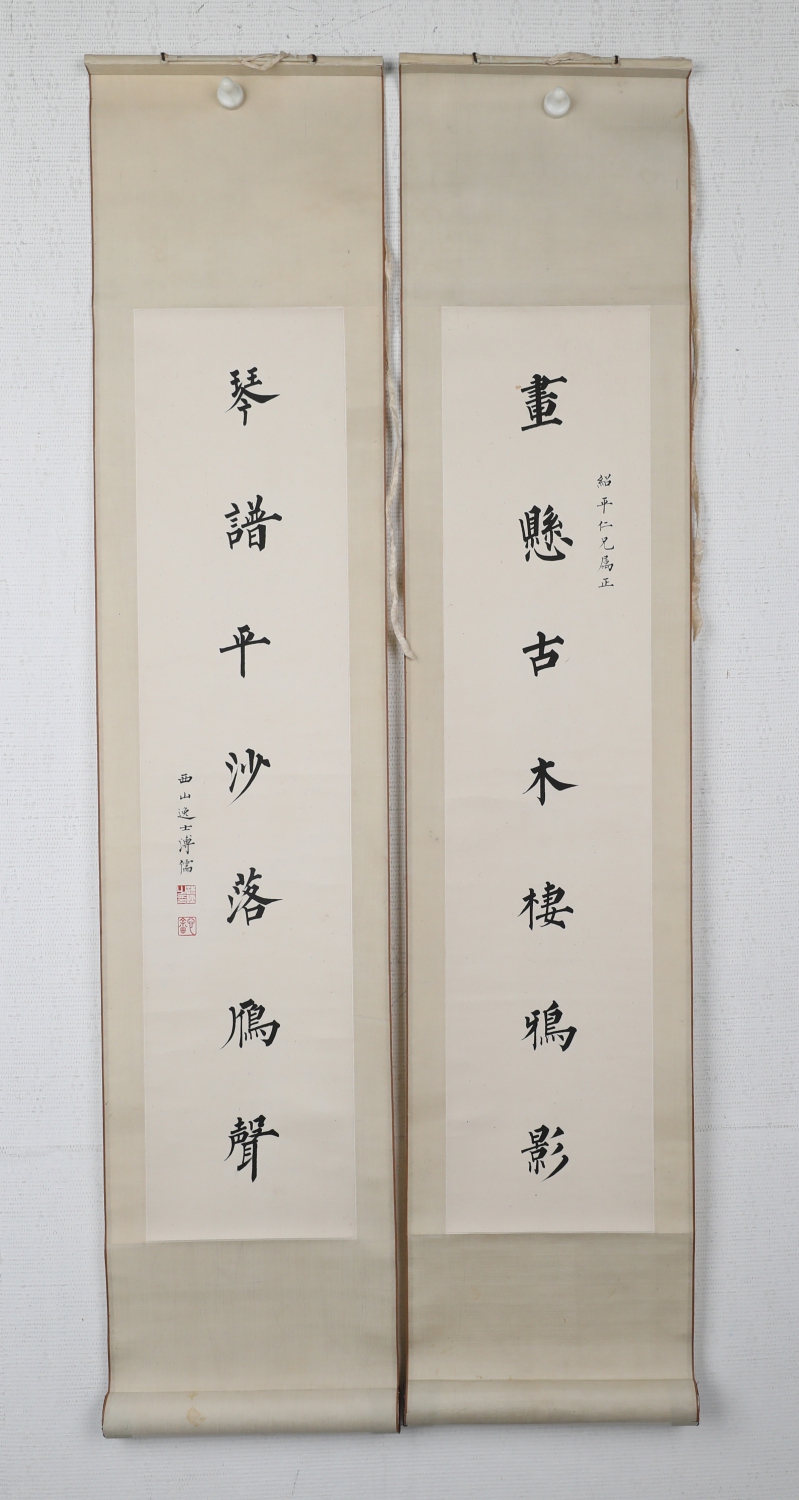 紹平仁兄屬正
畫懸古木棲鴉影
琴譜平沙落鴈聲
西山逸士溥儒